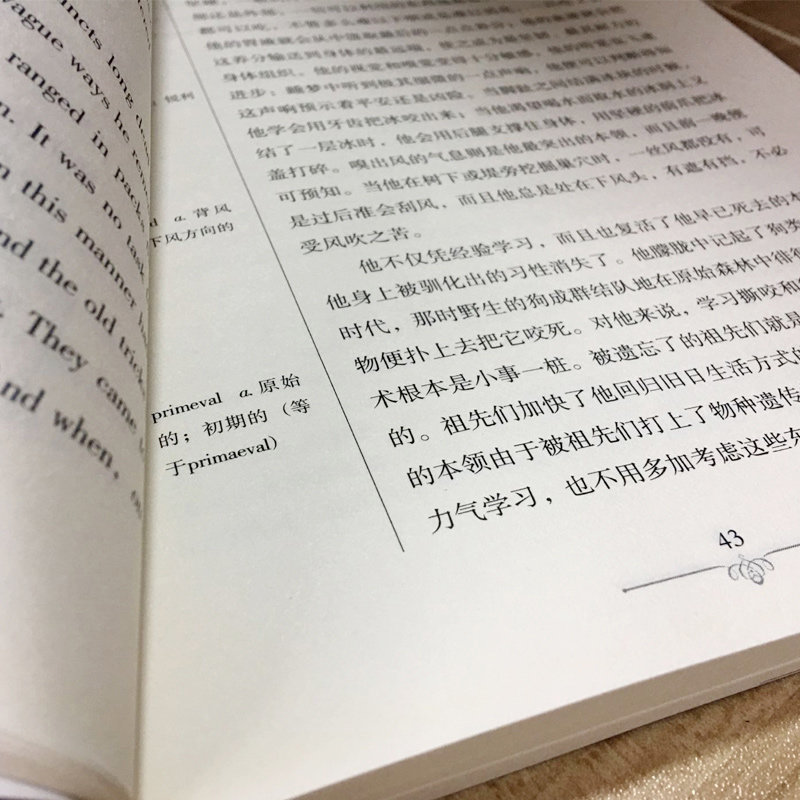 ncts long dea
vague ways he rem
ranged in packs
n. It was no task
n this manner ha
nd the old tricks
They came t
nd when, on
a. 背风
下风方向的
primeval a. 原始
的；初期的（等
于primaeval）
都可以吃，
他的胃液就会从中
这养分输送到身体的最远端，
身体组织。他的视觉和嗅觉变得十分敏感，他的听觉
进步；睡梦中听到极其细微的一点声响，他便可以判断得知
这声响预示着平安还是凶险。当脚趾之间结满冰块的时候，
他学会用牙齿把冰咬出来；当他渴望喝水而取水的冰洞上又
结了一层冰时，他会用后腿支撑住身体，用坚硬的前爪把冰
盖打碎。嗅出风的气息则是他最突出的本领，而且前一晚便
可预知。当他在树下或堤旁挖掘巢穴时，一丝风都没有，可
是过后准会刮风，而且他总是处在下风头，有遮有挡，不必
受风吹之苦。
他不仅凭经验学习，而且也复活了他早已死去的本
他身上被驯化出的习性消失了。他朦胧中记起了狗类
时代，那时野生的狗成群结队地在原始森林中徘徊
物便扑上去把它咬死。对他来说，学习撕咬和
术根本是小事一桩。被遗忘了的祖先们就是
的。祖先们加快了他回归旧日生活方式的
的本领由于被祖先们打上了物种遗传
力气学习，也不用多加考虑这些东
43